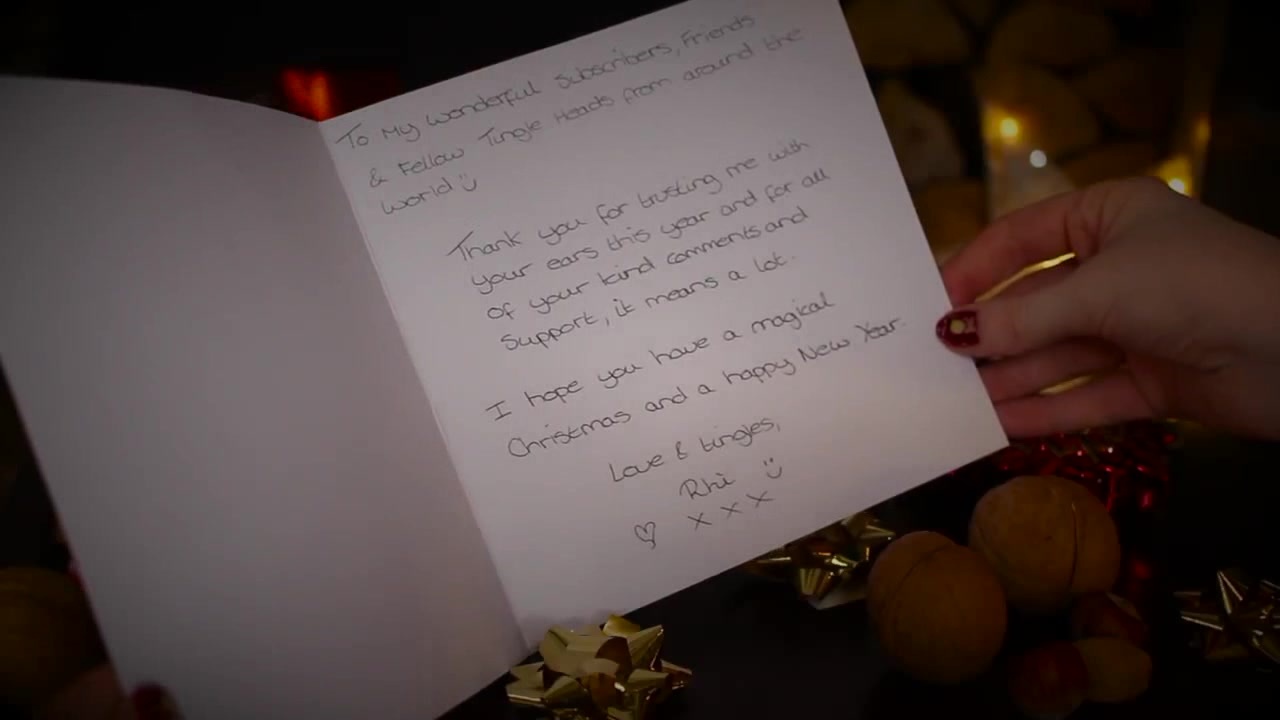 To My wonderful Subscribers, Friends
& Fellow Tingle Heads from around the
world :)
Thank you for trusting me with
your ears this year and for all
of your kind comments and
Support, it means a lot.
I hope you have a magical
Christmas and a happy New Year.
Love & tingles,
Rhi :)
♡ x x x